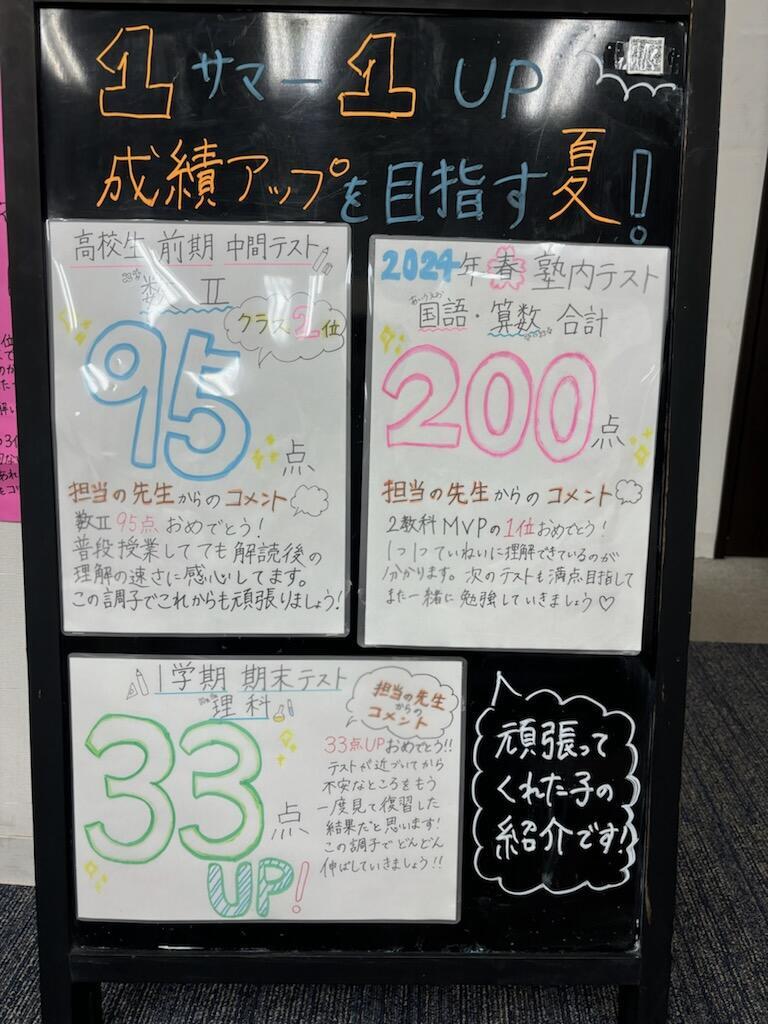 1サマー1UP
成績アップを目指す夏!
高校生 前期 中間テスト
数Ⅱ
クラス2位
95点
担当の先生からのコメント
数Ⅱ 95点 おめでとう!
普段授業してても解読後の
理解の速さに感心してます。
この調子でこれからも頑張りましょう!
2024年 春 塾内テスト
国語・算数 合計
200点
担当の先生からのコメント
2教科MVPの1位おめでとう!
1つ1つていねいに理解できているのが
分かります。次のテストも満点目指して
また一緒に勉強していきましょう♡
1学期 期末テスト
理科
33点
UP!
担当の先生
からの
コメント
33点UPおめでとう!!
テストが近づいてから
不安なところをもう
一度見て復習した
結果だと思います!
この調子でどんどん
伸ばしていきましょう!!
頑張って
くれた子の
紹介です!